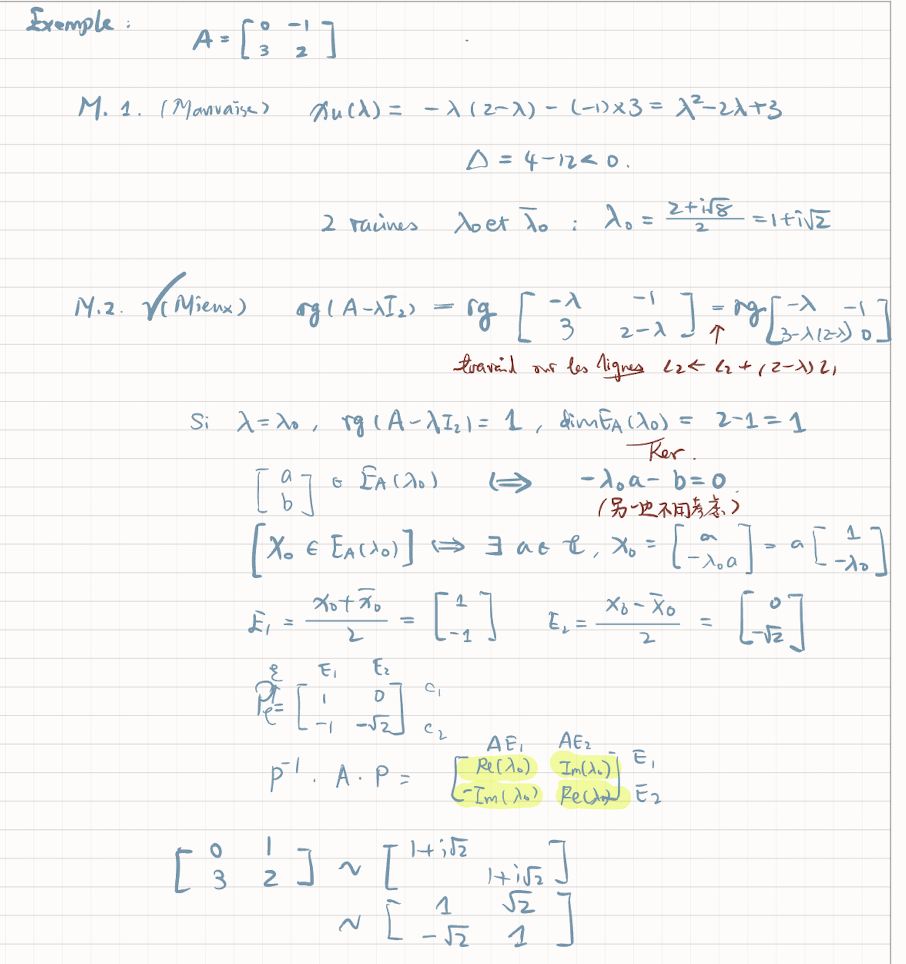 Exemple : A = [0 -1; 3 2]
M. 1. (Mauvaise) χu(λ) = -λ(2-λ) - (-1)×3 = λ²-2λ+3
Δ = 4-12 < 0.
2 racines λ₀ et λ̄₀ : λ₀ = (2+i√8)/2 = 1+i√2
M.2. √(Mieux) rg(A-λI₂) = rg [-λ -1; 3 2-λ] = rg [-λ -1; 3-λ(2-λ) 0]
↑
travail sur les lignes L₂ ← L₂ + (2-λ)L₁
Si λ=λ₀, rg(A-λI₂) = 1, dim E_A(λ₀) = 2-1 = 1
Ker.
[a; b] ∈ E_A(λ₀) ⟺ -λ₀a - b = 0.
(另一也不用考虑)
[X₀ ∈ E_A(λ₀)] ⟺ ∃ a ∈ ℂ, X₀ = [a; -λ₀a] = a [1; -λ₀]
E₁ = (X₀+X̄₀)/2 = [1; -1] E₂ = (X₀-X̄₀)/2 = [0; -√2]
ε E₁ E₂
P = [1 0; -1 -√2] C₁ C₂
AE₁ AE₂
P⁻¹ · A · P = [Re(λ₀) Im(λ₀); -Im(λ₀) Re(λ₀)] E₁ E₂
[0 1; 3 2] ~ [1+i√2 ; 1+i√2]
~ [1 √2; -√2 1]